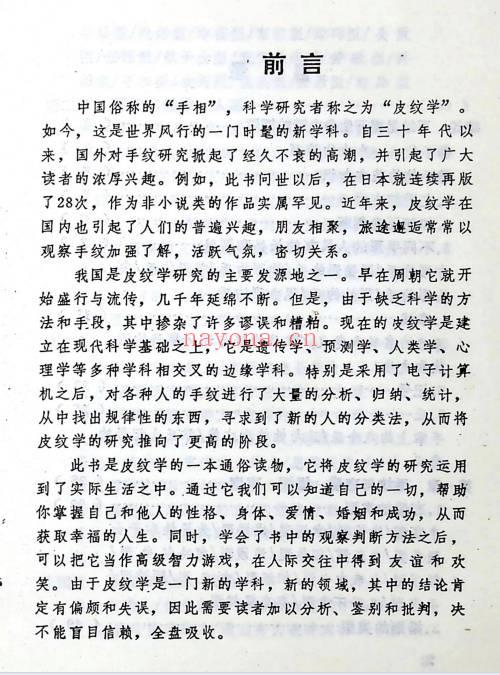 前言
中国俗称的“手相”，科学研究者称之为“皮纹学”。
如今，这是世界风行的一门时髦的新学科。自三十年代以
来，国外对手纹研究掀起了经久不衰的高潮，并引起了广大
读者的浓厚兴趣。例如，此书问世以后，在日本就连续再版
了28次，作为非小说类的作品实属罕见。近年来，皮纹学在
国内也引起了人们的普遍兴趣，朋友相聚，旅途邂逅常常以
观察手纹加强了解，活跃气氛，密切关系。
我国是皮纹学研究的主要发源地之一。早在周朝它就开
始盛行与流传，几千年延绵不断。但是，由于缺乏科学的方
法和手段，其中掺杂了许多谬误和糟粕。现在的皮纹学是建
立在现代科学基础之上，它是遗传学、预测学、人类学、心
理学等多种学科相交叉的边缘学科。特别是采用了电子计算
机之后，对各种人的手纹进行了大量的分析、归纳、统计，
从中找出规律性的东西，寻求到了新的人的分类法，从而将
皮纹学的研究推向了更高的阶段。
此书是皮纹学的一本通俗读物，它将皮纹学的研究运用
到了实际生活之中。通过它我们可以知道自己的一切，帮助
你掌握自己和他人的性格、身体、爱情、婚姻和成功，从而
获取幸福的人生。同时，学会了书中的观察判断方法之后，
可以把它当作高级智力游戏，在人际交往中得到友谊和欢
笑。由于皮纹学是一门新的学科，新的领域，其中的结论肯
定有偏颇和失误，因此需要读者加以分析、鉴别和批判，决
不能盲目信赖，全盘吸收。
nayona.cn